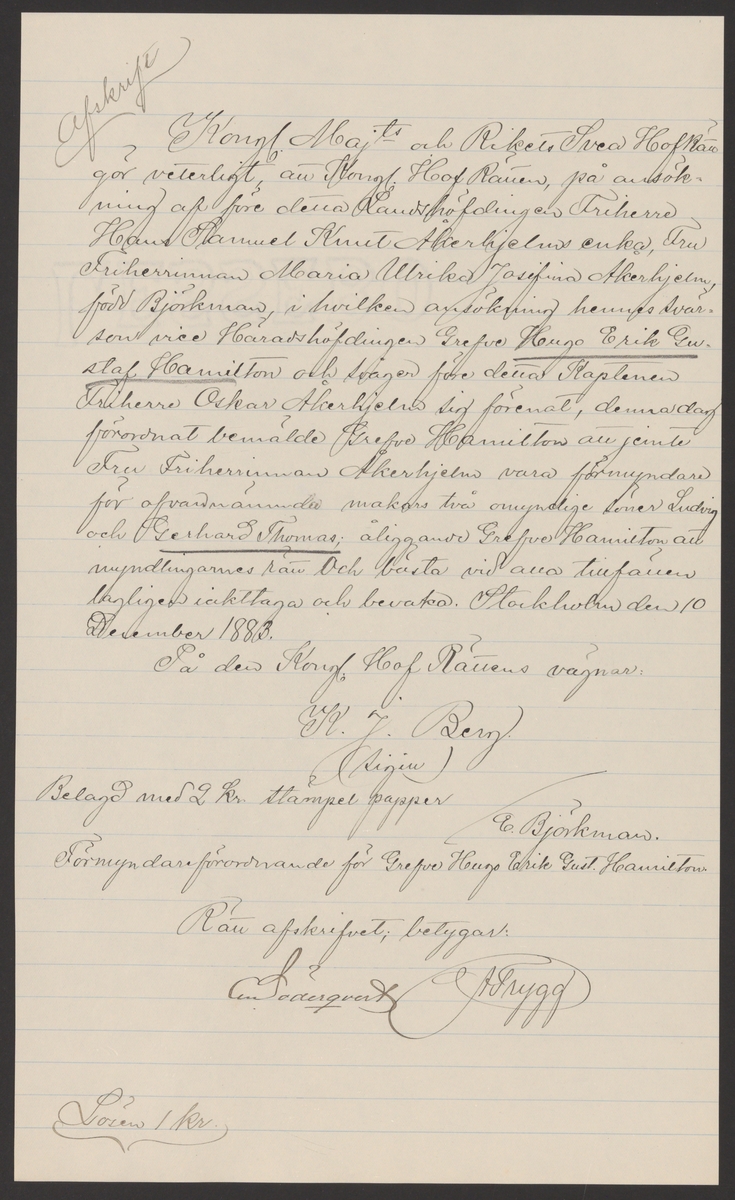 Afskrift
Kongl. Maj:ts och Rikets Svea Hofrätt
gör veterligt, att Kongl. Hof Rätten, på ansök-
ning af före detta Landshöfdingen Friherre
Hans Samuel Knut Åkerhjelms enka, Fru
Friherrinnan Maria Ulrika Josefina Åkerhjelm,
född Björkman, i hvilken ansökning hennes svär-
son vice Häradshöfdingen Grefve Hugo Erik Gu-
staf Hamilton och svåger före detta Kaptenen
Friherre Oskar Åkerhjelm sig förenat, denna dag
förordnat bemälde Grefve Hamilton att jemte
Fru Friherrinnan Åkerhjelm vara förmyndare
för ofvannämnda makars två omyndige söner Ludvig
och Gerhard Thomas; åliggande Grefve Hamilton att
myndlingarnes rätt och bästa vid alla tillfällen
lagligen iakttaga och bevaka. Stockholm den 10
December 1883.
På den Kongl. Hof Rättens vägnar:
K. J. Berg.
(sigill)
Belagd med 2 kr. stämpel papper
E. Björkman.
Förmyndareförordnande för Grefve Hugo Erik Gust. Hamilton.
Rätt afskrifvet, betygar:
Söderqvist ATrygg
Lösen 1 kr.